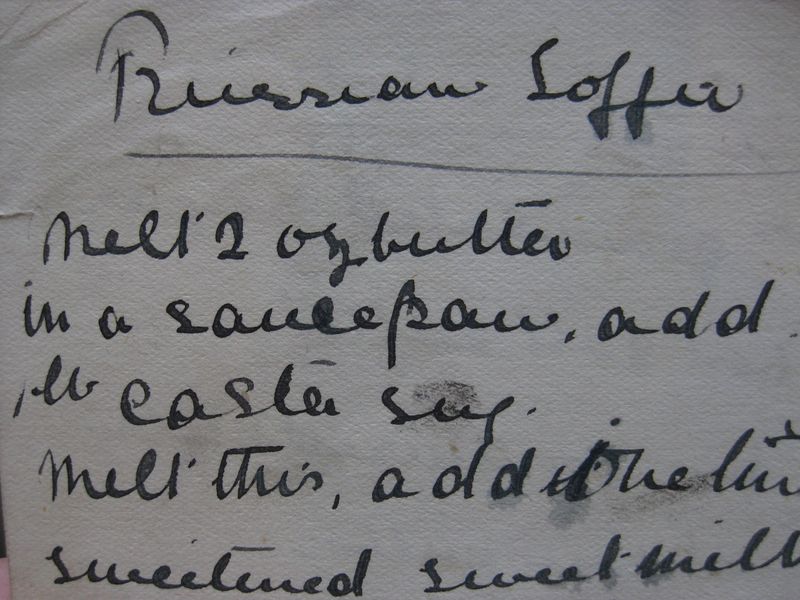 Russian Toffee
Melt 2 oz butter
in a saucepan, add
1 lb caster sug.
Melt this, add one tin
sweetened sweet milk